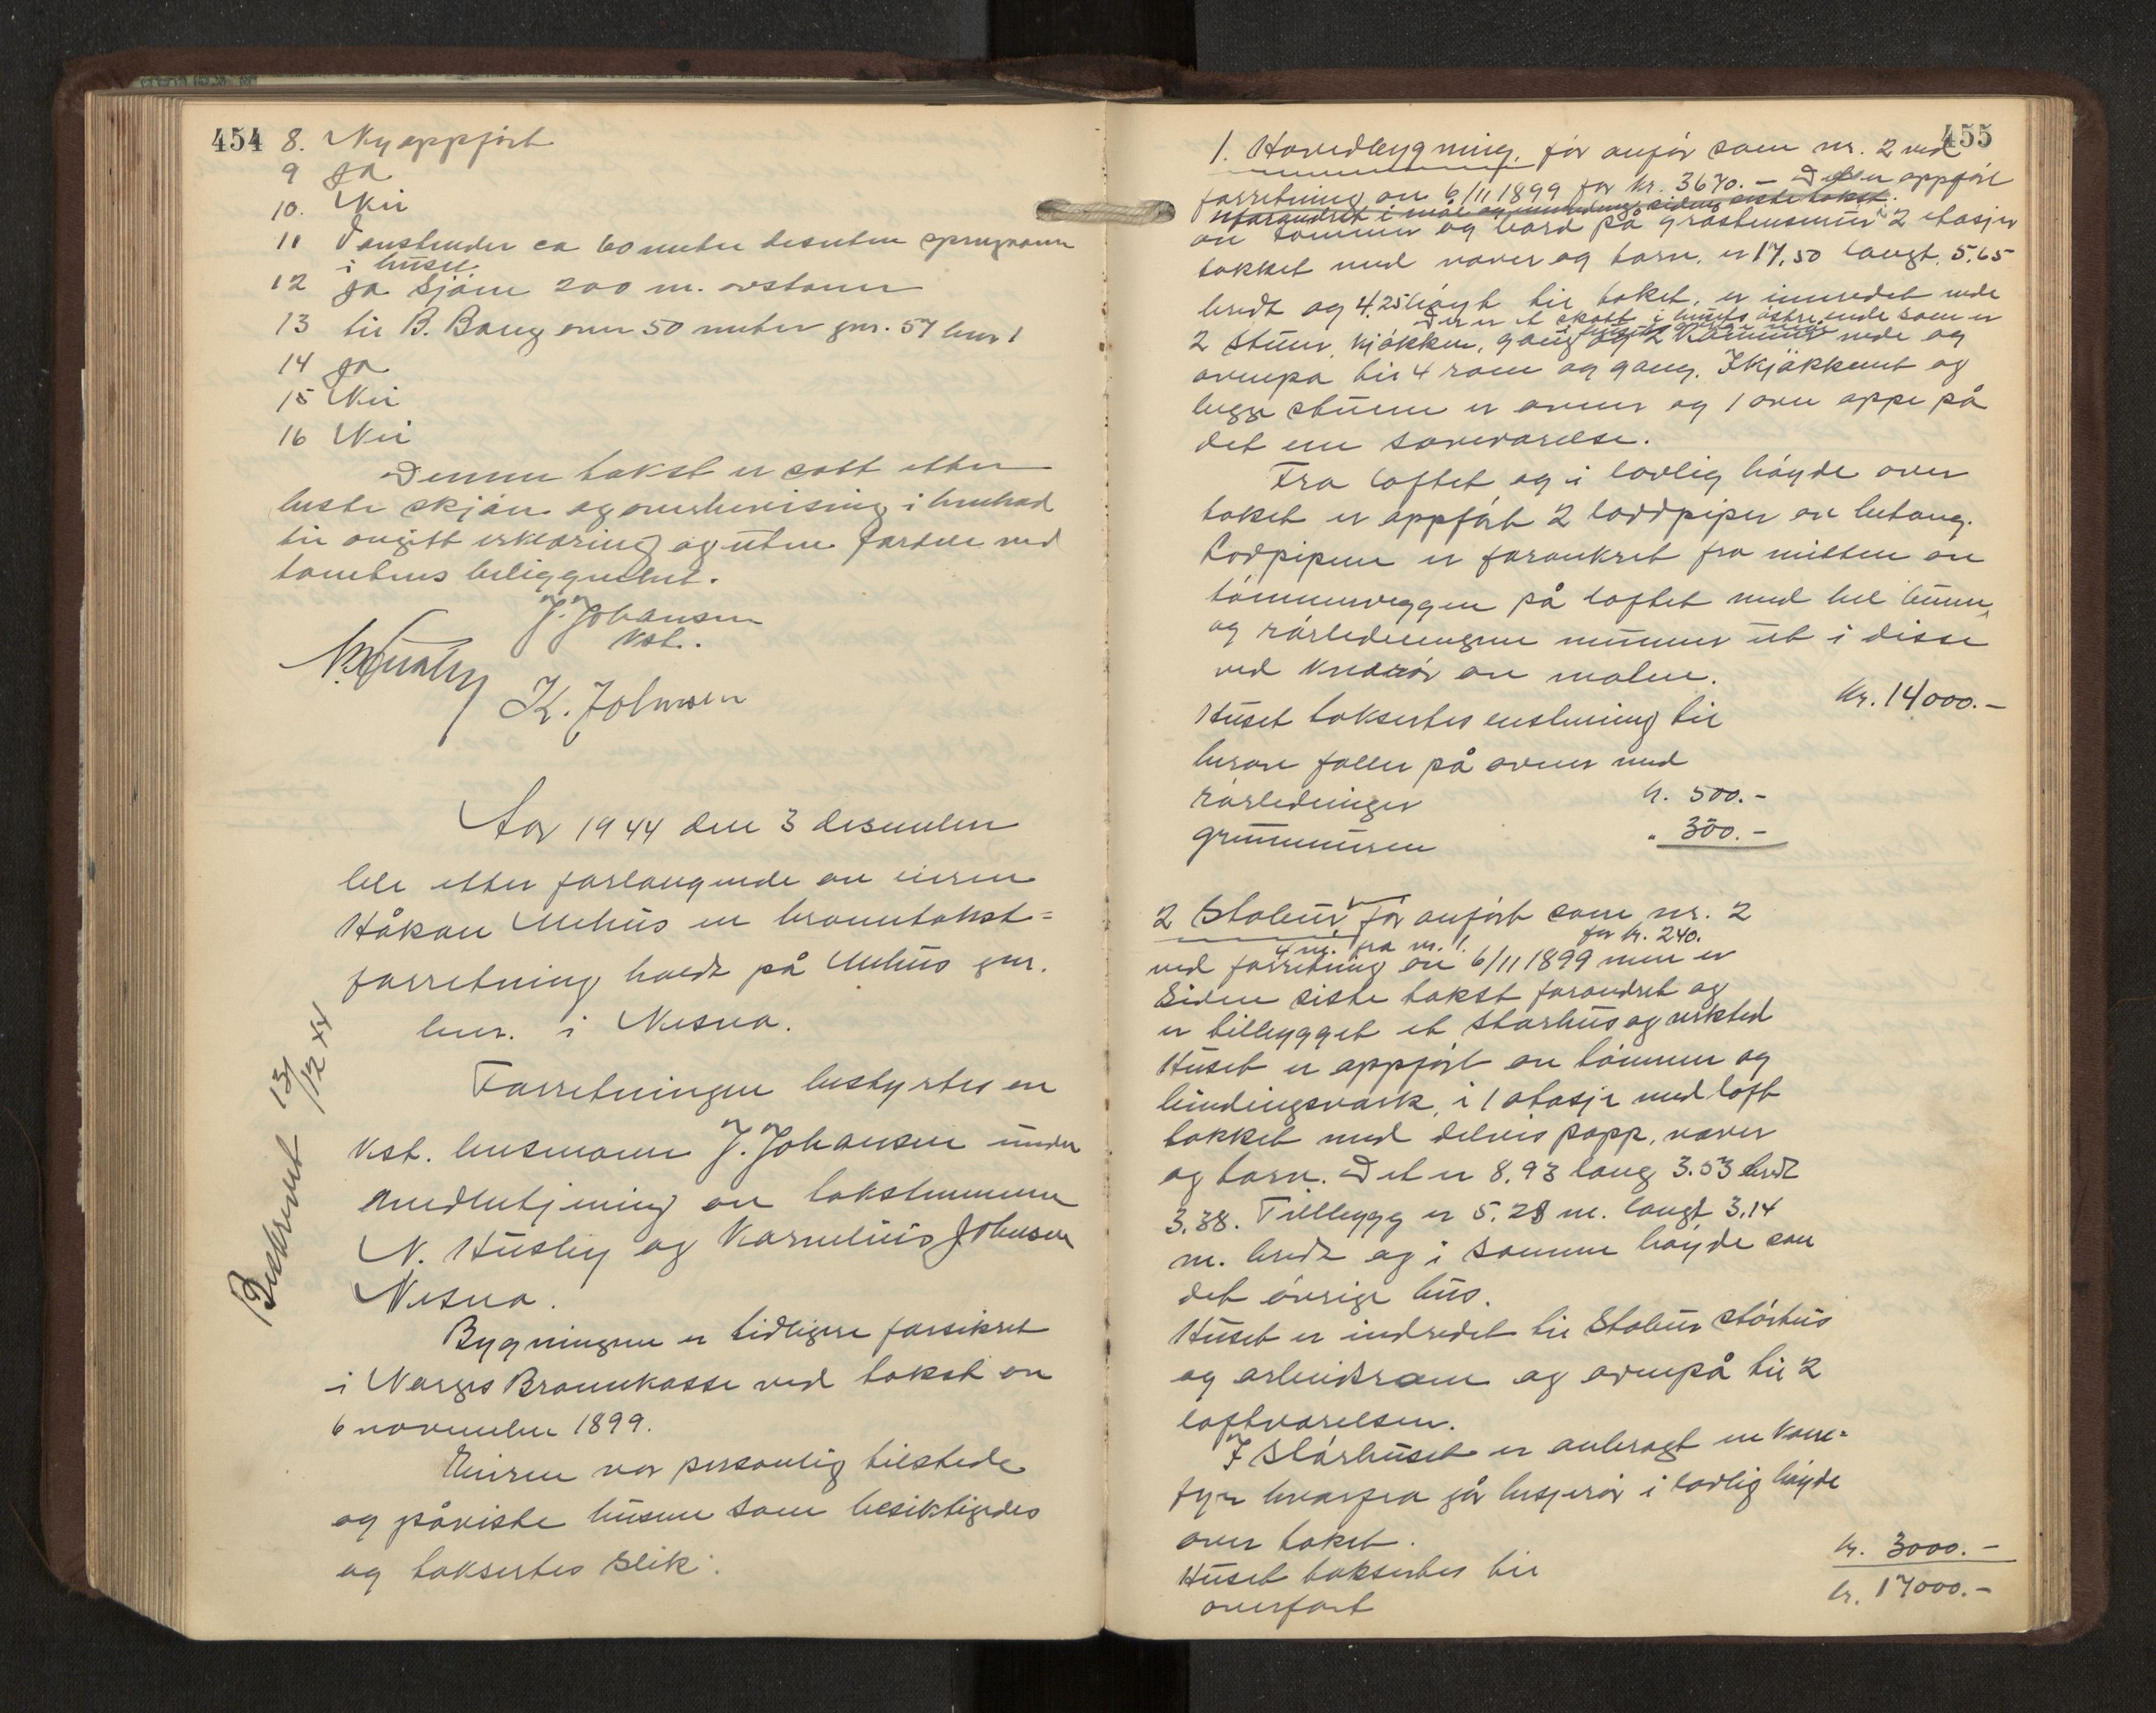 454
8. Nyoppført
9 Ja
10. Nei
11 Vanstender ca 60 meter desuten springvann
i huset.
12 Ja Sjøen 200 m. avstann
13 til B. Bang over 50 meter gnr. 57 bnr 1
14 Ja
15 Nei
16 Nei
Denne takst er satt etter
beste skjøn og overbevisning i henhold
til avgitt erklæring og uten fordel ved
tomtens beliggenhet.
J. Johansen
Kst.
N. Husby
K. Johnsen
Aar 1944 den 3 desember
ble etter forlangende av eieren
Håkon en branntakst=
forretning holdt på gnr.
bnr. i Nesna.
Forretningen bestyrtes av
Kst. lensmann J. Johansen under
medbetjening av takstmennene
N. Husby og Kornelius Johnsen
Nesna.
Bygningene er tidligere forsikret
i Norges Brannkasse ved takst av
6 november 1899.
Eieren var personlig tilstede
og påviste husene som besiktigedes
og taksertes slik:
Beskrevet 13/12 44
455
1. Hovedbygning, før anfør som nr. 2 ved
forretning av 6/11 1899 for kr. 3670.- Det er oppført
uforandret i mål og innredning siden siste takst.
av tømmer og bord på gråstensmur i 2 etasjer
takket med never og torv, er 17,50 langt, 5,65
bredt og 4,25 høyt til taket, er innredet nede
Der er et skott i husets østre ende som er
2 stuer, kjøkken, gang og 2 kammer nede og
ovenpå til 4 rom og gang. I kjøkkenet og
begge stuene er ovner og 1 ovn oppe på
det ene soveværelse.
Fra loftet og i lovlig høyde over
taket er oppført 2 loddpiper av betong.
Lodpipene er forankret fra mitten av
tømmerveggen på loftet med hel bunn
og rørledningene munner ut i disse
ved knerør av malm.
Huset taksertes enstemmig til kr. 14000.-
herav faller på ovner med
rørledninger kr. 500.-
grunnmuren " 300.-
2 Stabur, før anført som nr. 2
4 m. fra nr. 1. for kr. 240.
ved forretning av 6/11 1899 men er
siden siste takst forandret og
er tilbygget et størhus og verksted
Huset er oppført av tømmer og
bindingsverk, i 1 etasje med loft
takket med delvis papp, never
og torv. Det er 8.93 lang 3.53 bredt
3.38. Tilbygg er 5.28 m. langt 3.14
m. bredt og i samme høyde som
det øvrige hus.
Huset er indredet til Stabur størhus
og arbeidsrom og ovenpå til 2
loftværelser.
I størhuset er anbragt en kom=
fyr hvorfra går besjerør i lovlig høyde
over taket.
Huset taksertes til kr. 3000.-
overført kr. 17000.-